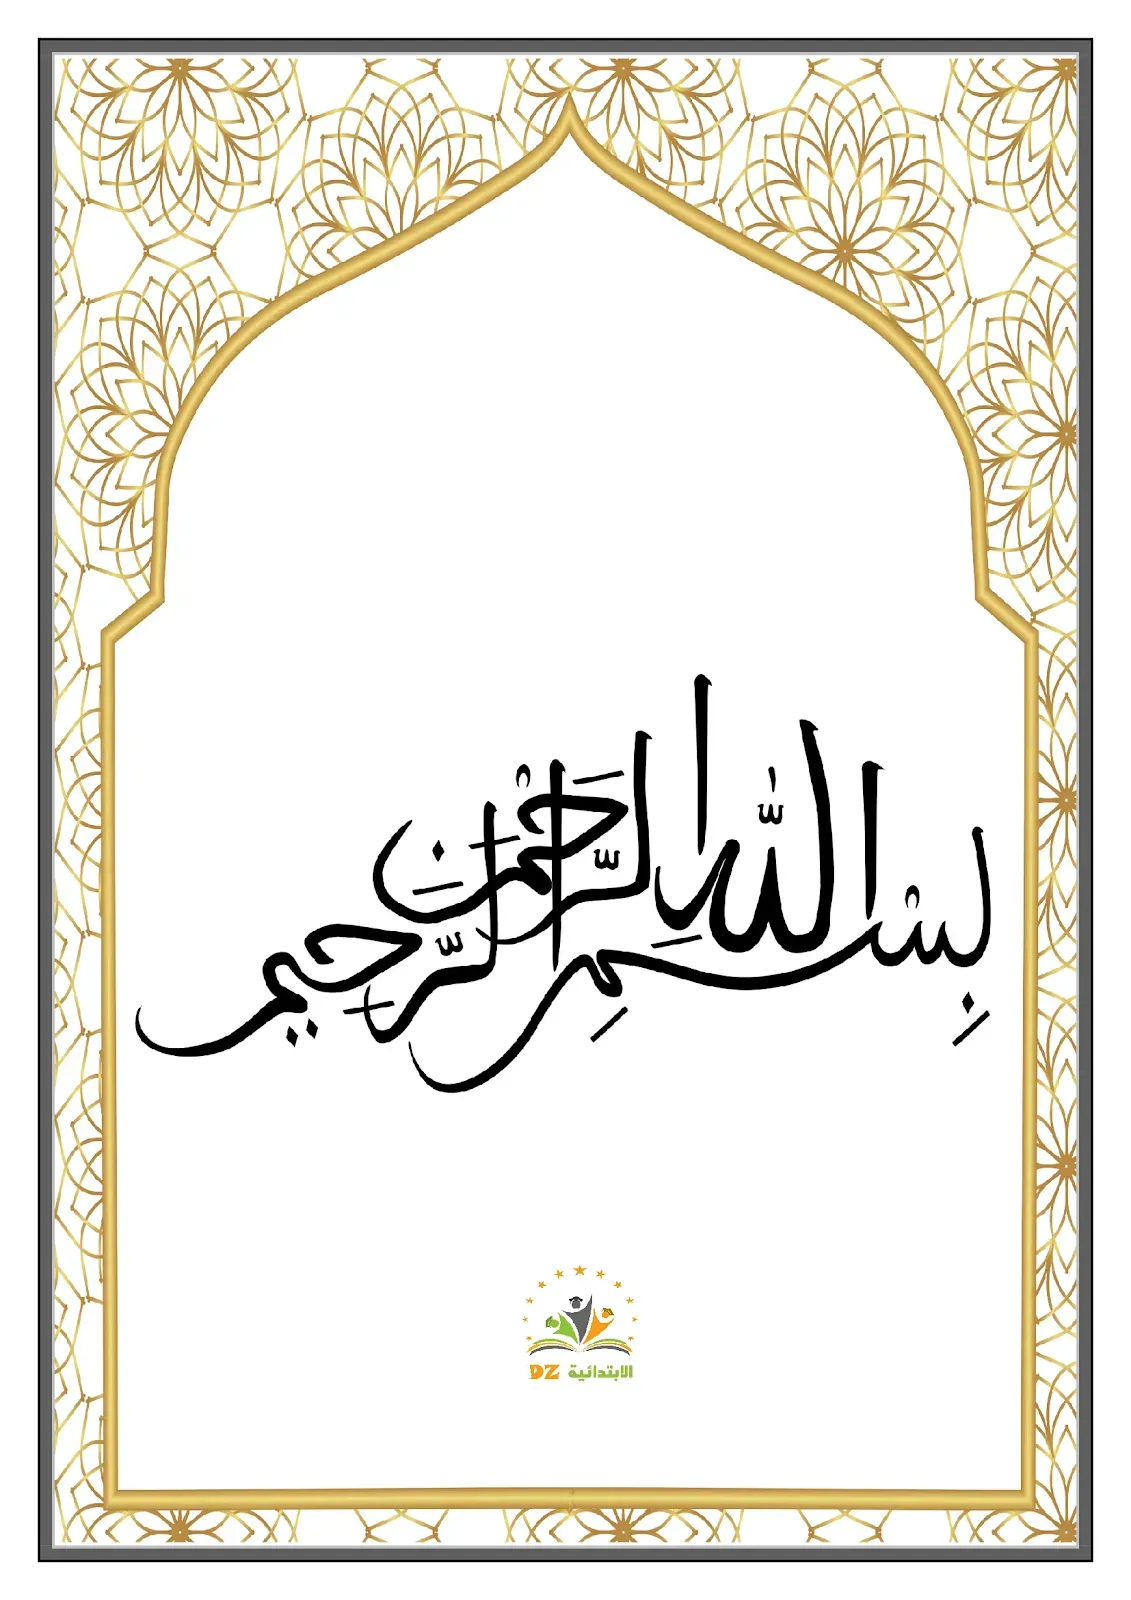 بِسْمِ اللَّهِ الرَّحْمَنِ الرَّحِيمِ
الابتدائية DZ